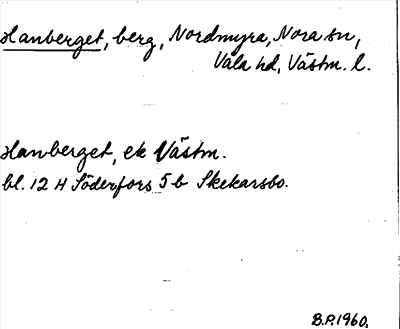 Hanberget, berg, Nordmyra, Nora sn,
Våla hd, Västm. l.
Hanberget, ek Västm.
bl. 12 H Söderfors 5 b Skekarsbo.
B.P. 1960.